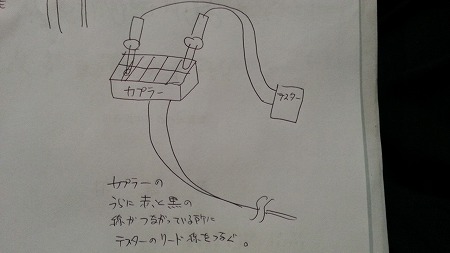 テスター
カプラー
カプラーの
うらに赤と黒の
線がつながっている所に
テスターのリード線をつなぐ。